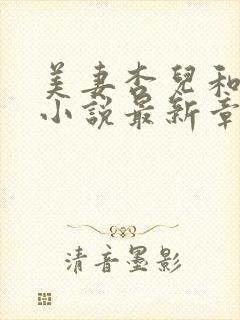 美妻杏兒和
小說最新章
清音墨影